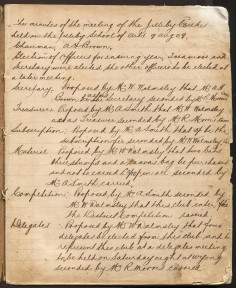 The minutes of the meeting of the Jilliby Cricket
held in the Jilliby School of arts 9 aug 09.
Chairman, A. H. Brown.
Election of Officers for ensuing year, Treasurer and
Secretary were elected the other officers to be elected at
a later meeting.
Secretary. Proposed by Mr W. Walmsley that Mr A. H
Brown be the secretary seconded by Mr R. Moore
Treasurer Proposed by Mr A. Smith that Mr W. Walmsley
act as Treasurer seconded by Mr R. Moore
Subscription. Proposed by Mr A. Smith that 5/- be the
subscription fee seconded by Mr W. Walmsley
Material. Proposed by Mr W. Walmsley that two bats
three stumps and a canvas bag be purchased
and not to exceed seconded by
Mr A. Smith carried.
Competition. Proposed by Mr A. Smith seconded by
Mr W. Walmsley that this club enter for
the District Competition carried
Delegates. Proposed by Mr W. Walmsley that four
delegates be elected from this club and to
represent this club at a delegates meeting
to be held on Saturday night at Wyong
seconded by Mr R. Moore carried